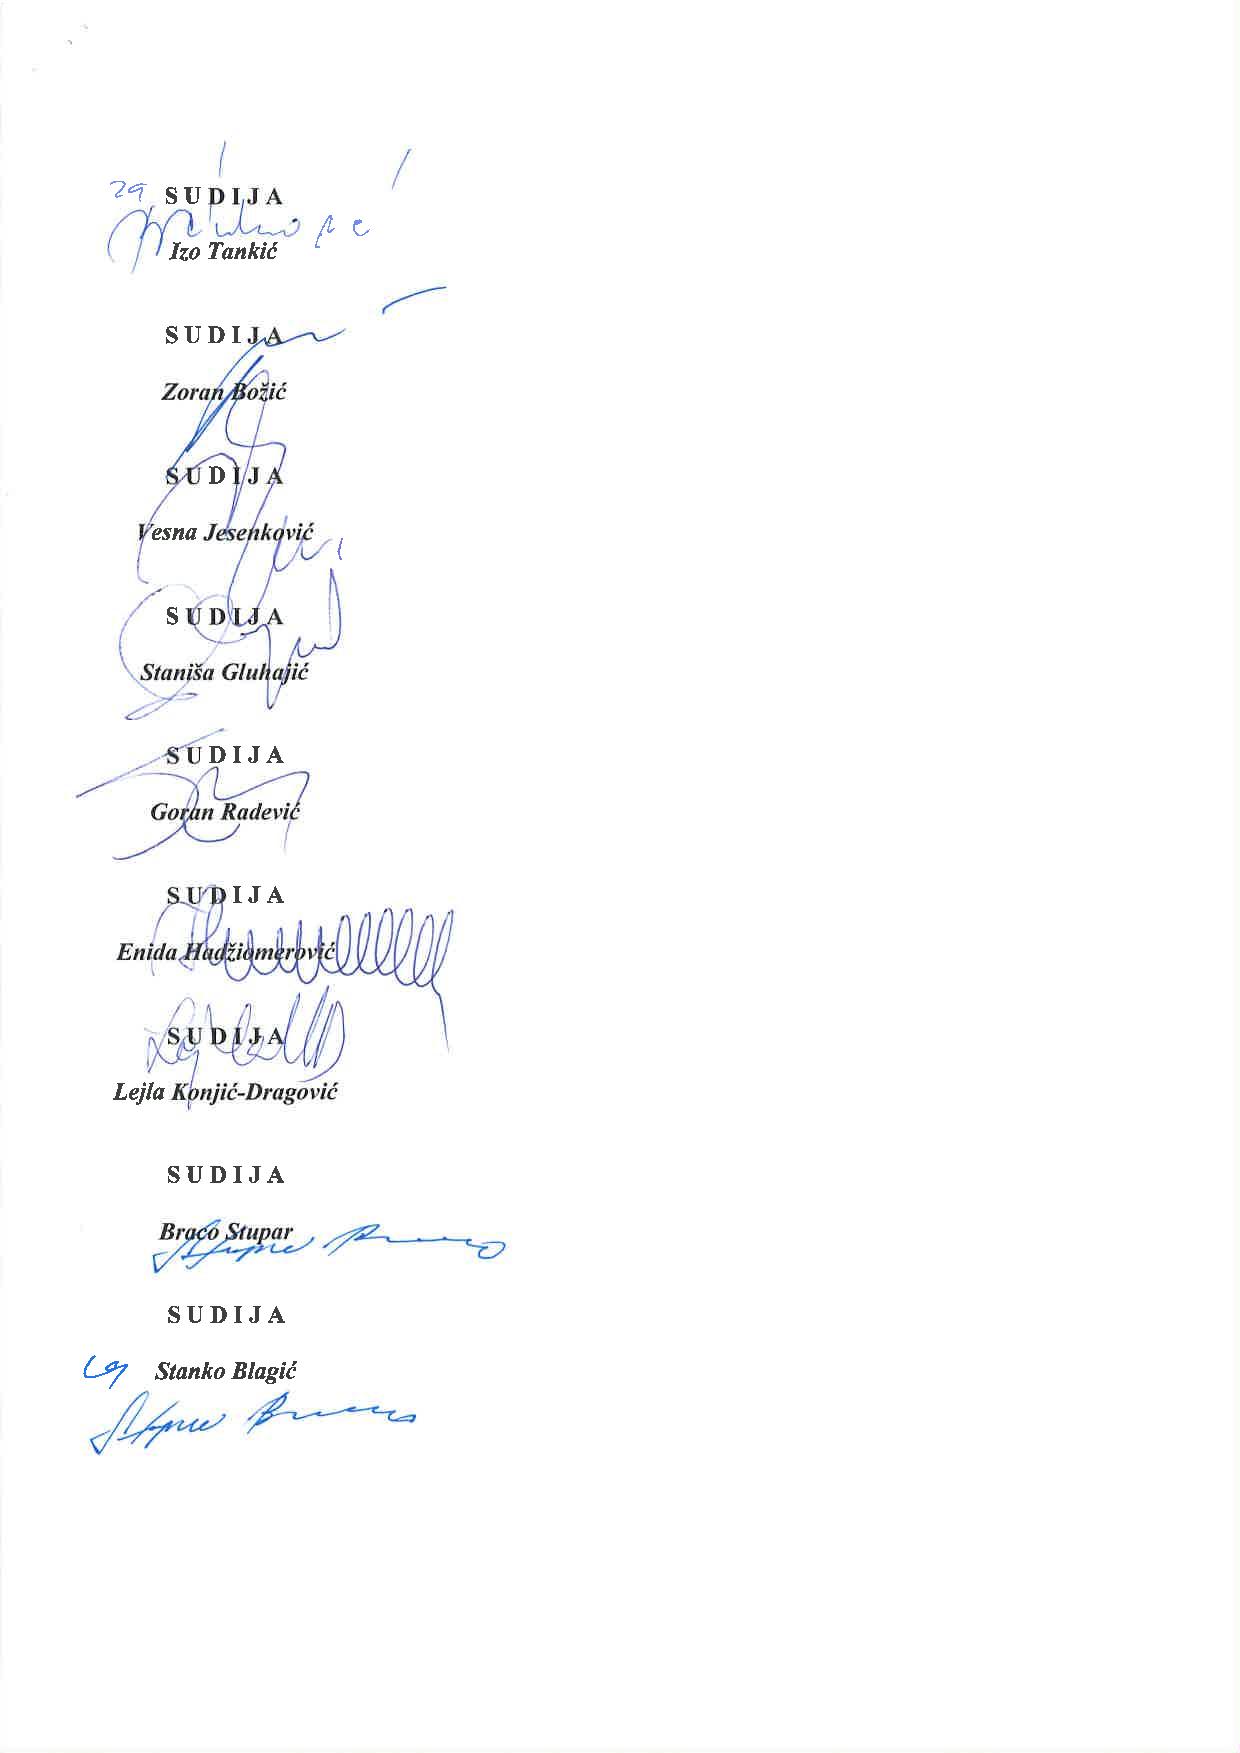 za SUDIJA
Izo Tankić
SUDIJA
Zoran Božić
SUDIJA
Vesna Jesenković
SUDIJA
Staniša Gluhajić
SUDIJA
Goran Radević
SUDIJA
Enida Hadžiomerović
SUDIJA
Lejla Konjić-Dragović
SUDIJA
Braco Stupar
SUDIJA
za Stanko Blagić